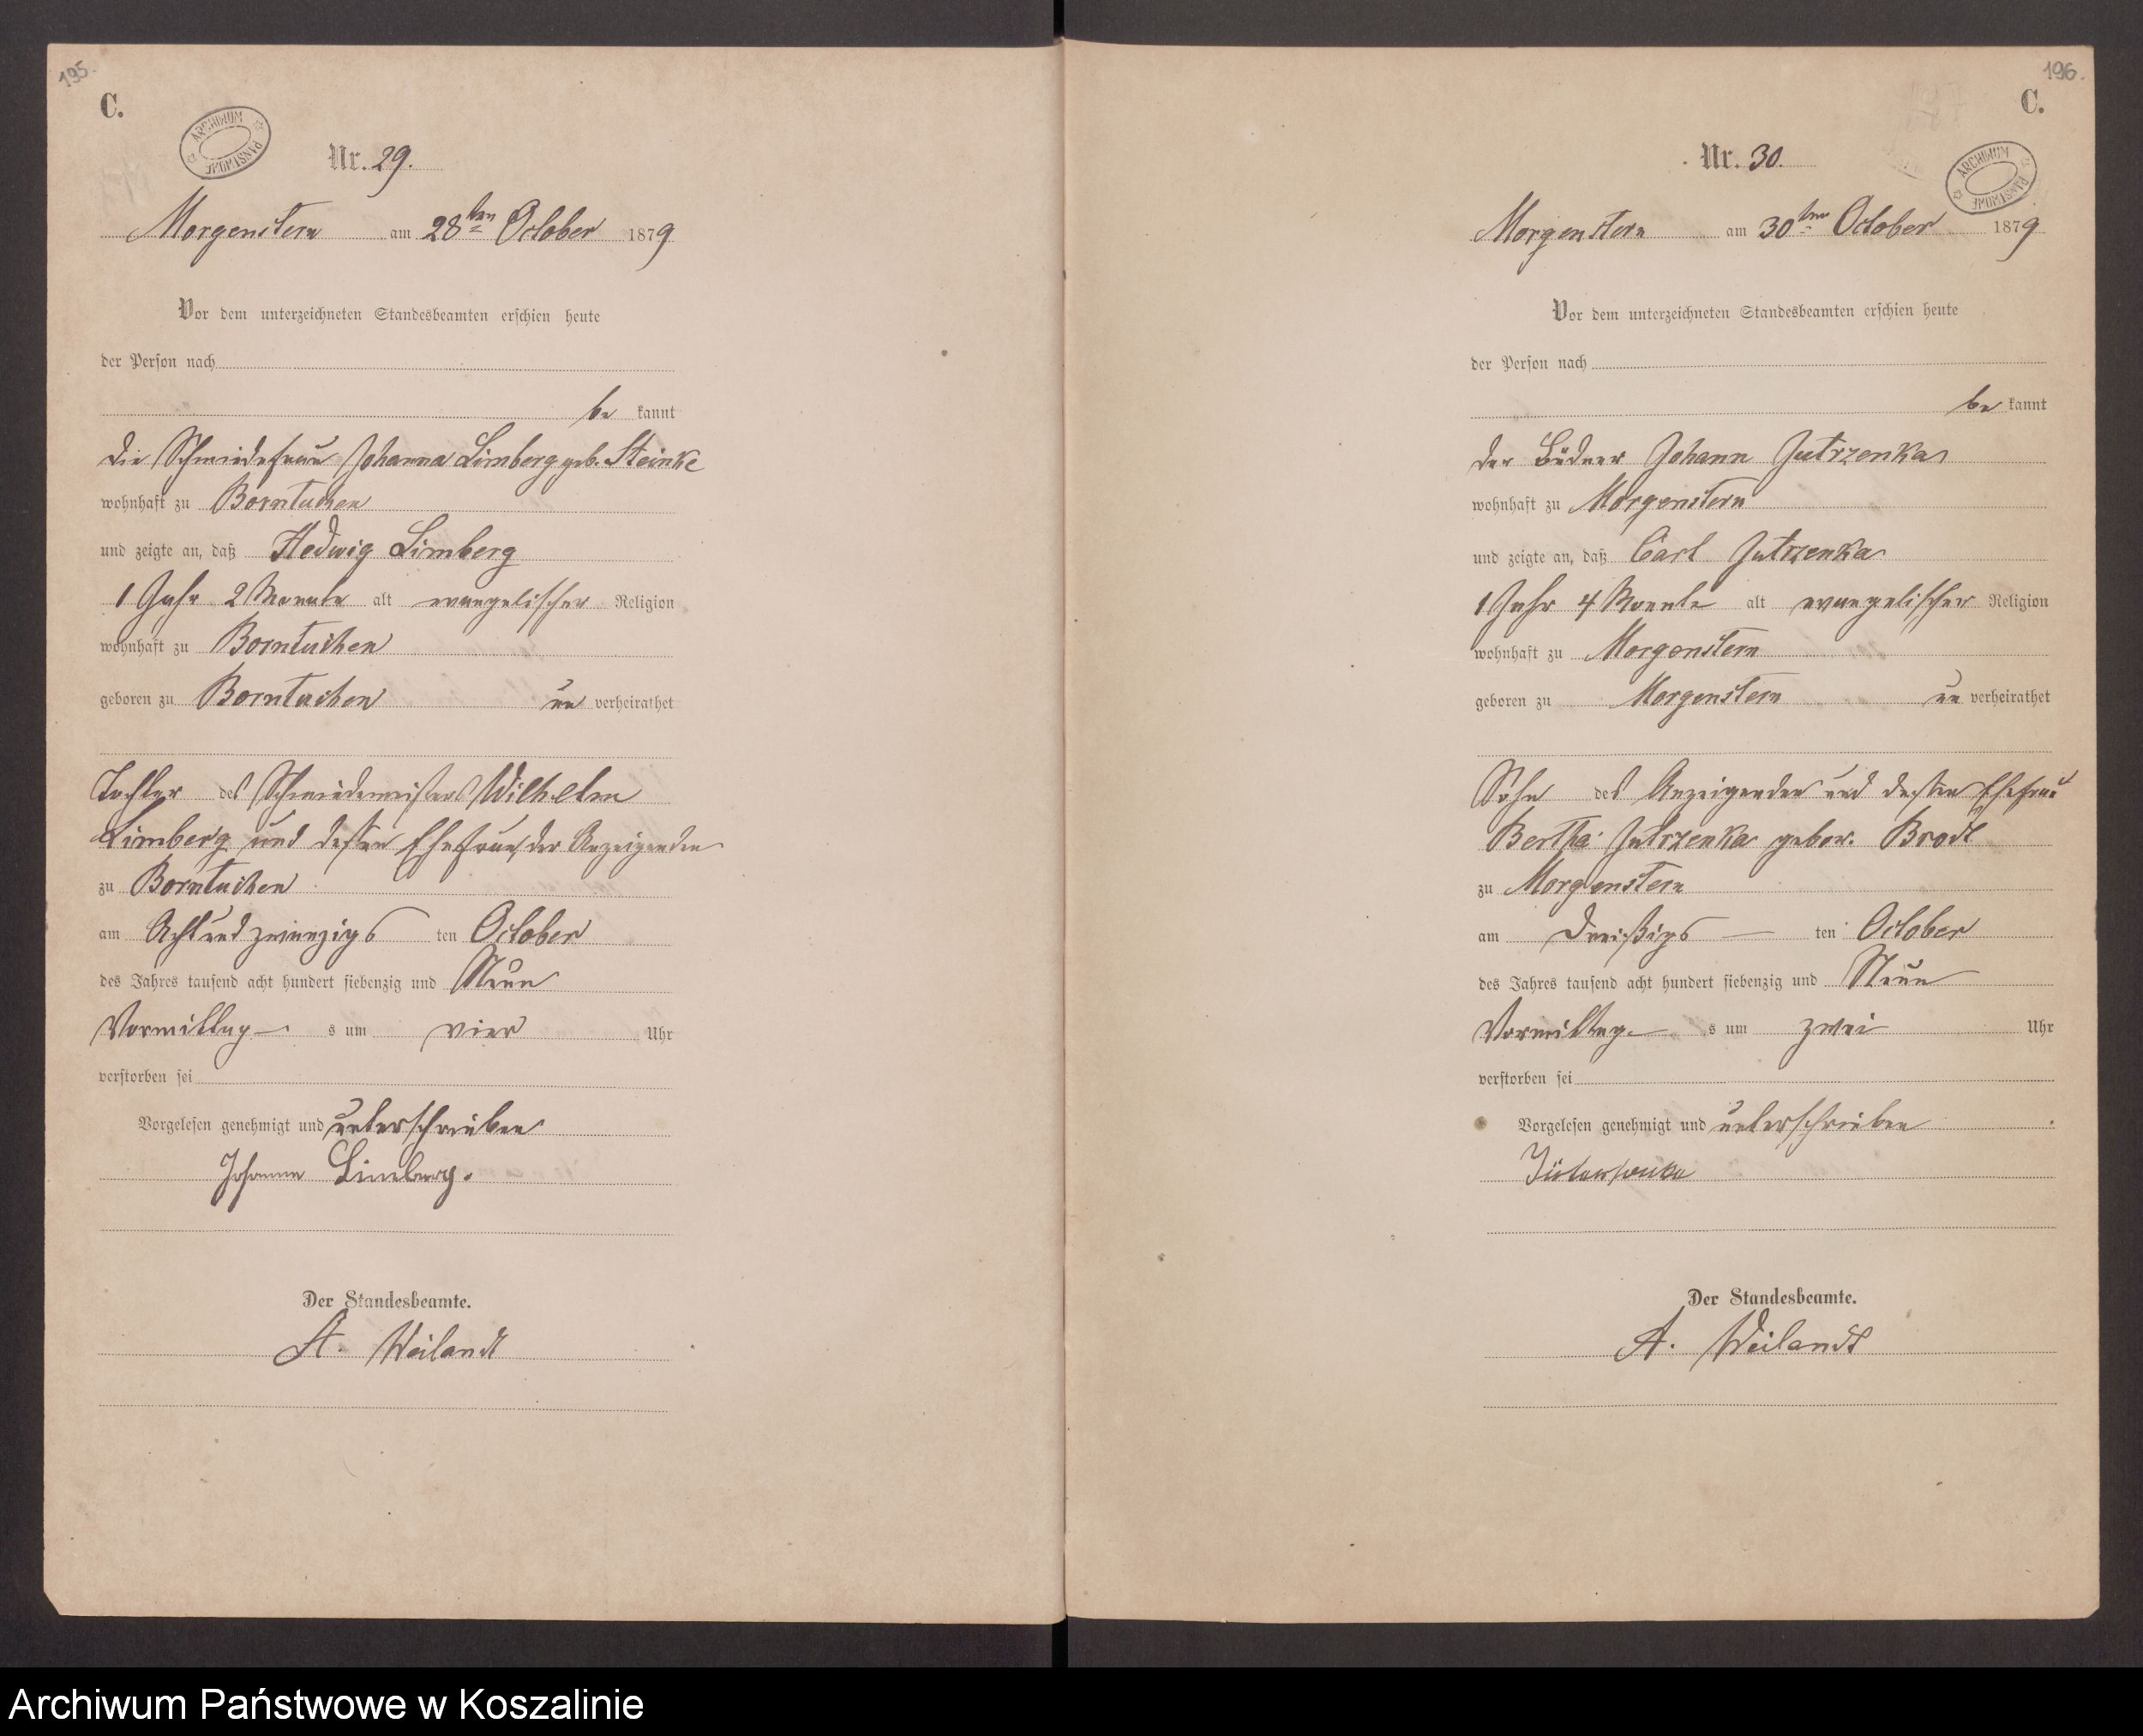 195.
C.
ARCHIWUM PAŃSTWOWE
Nr. 29.
Morgenstern am 28ten October 1879
Vor dem unterzeichneten Standesbeamten erschien heute
der Person nach
be kannt
die Schmiedefrau Johanna Limberg geb. Steinke
wohnhaft zu Borntuchen
und zeigte an, daß Hedwig Limberg
1 Jahr 2 Monate alt evangelischer Religion
wohnhaft zu Borntuchen
geboren zu Borntuchen un verheirathet
Tochter des Schmiedemeisters Wilhelm
Limberg und dessen Ehefrau, der Anzeigenden
zu Borntuchen
am Acht und zwanzigs ten October
des Jahres tausend acht hundert siebenzig und Neun
Vormittag s um vier Uhr
verstorben sei
Vorgelesen genehmigt und unterschrieben
Johanna Limberg.
Der Standesbeamte.
A. Weilandt
196.
C.
ARCHIWUM PAŃSTWOWE
Nr. 30.
Morgenstern am 30ten October 1879
Vor dem unterzeichneten Standesbeamten erschien heute
der Person nach
be kannt
der Büdner Johann Jutrzenka
wohnhaft zu Morgenstern
und zeigte an, daß Carl Jutrzenka
1 Jahr 4 Monate alt evangelischer Religion
wohnhaft zu Morgenstern
geboren zu Morgenstern un verheirathet
Sohn des Anzeigenden und dessen Ehefrau
Bertha Jutrzenka gebor. Brodt
zu Morgenstern
am Dreißigs ten October
des Jahres tausend acht hundert siebenzig und Neun
Vormittag s um zwei Uhr
verstorben sei
Vorgelesen genehmigt und unterschrieben
Der Standesbeamte.
A. Weilandt
Archiwum Państwowe w Koszalinie